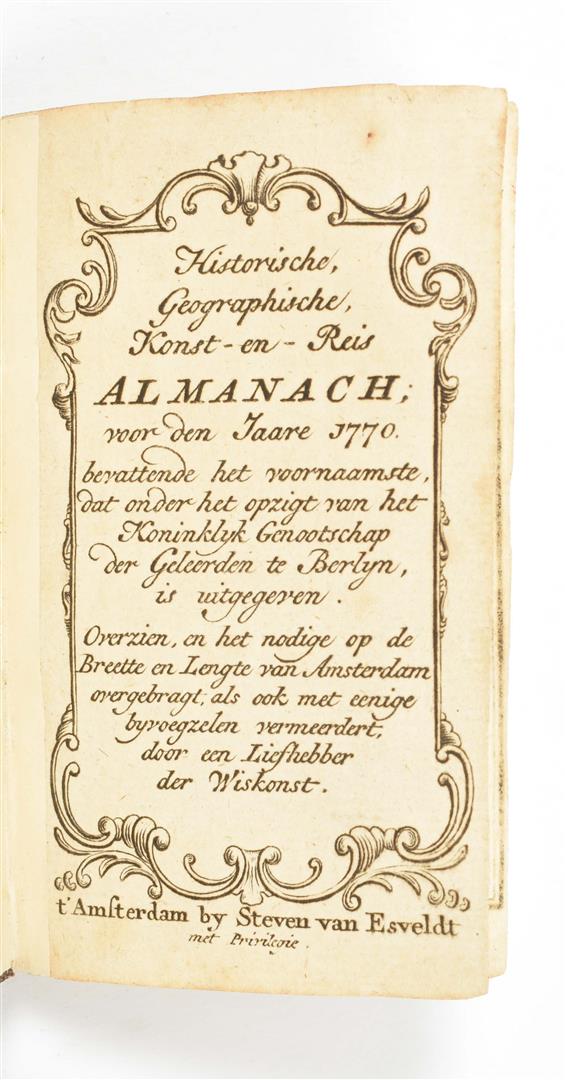 Historische,
Geographische,
Konst-en-Reis
ALMANACH;
voor den Jaare 1770.
bevattende het voornaamste,
dat onder het opzigt van het
Koninklyk Genootschap
der Geleerden te Berlyn,
is uitgegeven.
Overzien, en het nodige op de
Breette en Lengte van Amsterdam
overgebragt, als ook met eenige
byvoegzelen vermeerdert,
door een Liefhebber
der Wiskonst.
t'Amsterdam by Steven van Esveldt
met Privilegie.